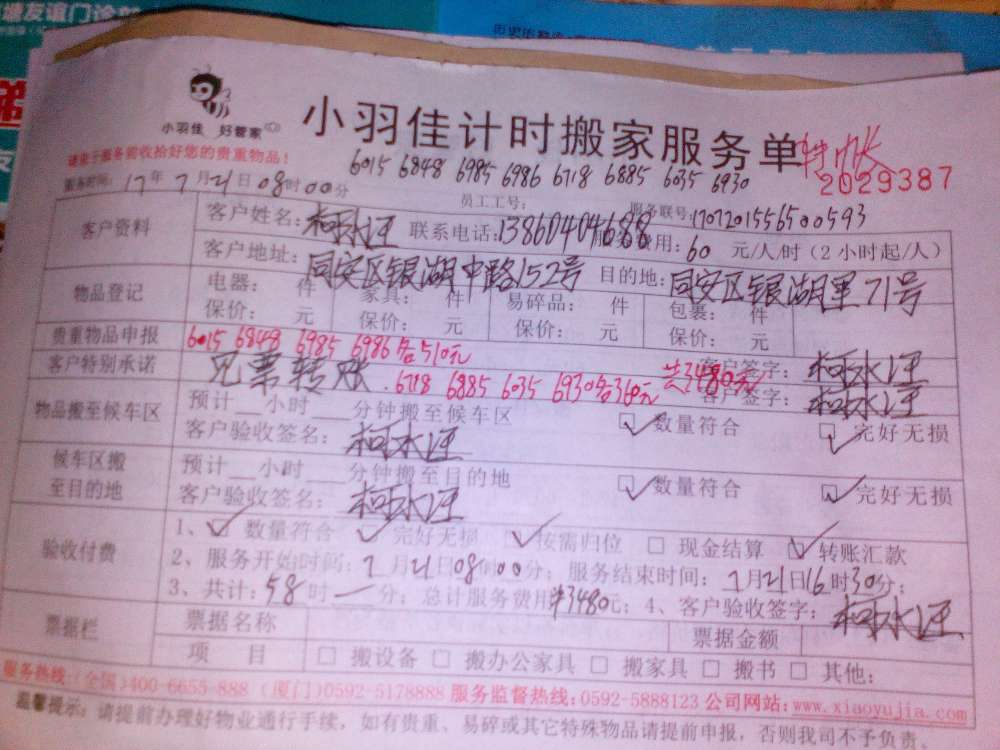 谱友谊门诊部
小羽佳 好管家
小羽佳计时搬家服务单
转账
请您于服务前收拾好您的贵重物品!
6015 6848 6985 6986 6718 6885 6035 6930
2029387
服务时间: 17年7月21日08时00分 员工工号: 服务联号:1707201556500593
客户资料 客户姓名: 柯水汪 联系电话:13860404688 服务费用: 60 元/人/时(2小时起/人)
客户地址: 同安区银湖中路152号 目的地: 同安区银湖里71号
物品登记 电器: 件 家具: 件 易碎品: 件 包裹: 件
保价: 元 保价: 元 保价: 元 保价: 元
贵重物品申报 6015 6848 6985 6986各510元 客户签字: 柯水汪
客户特别承诺 见票转账 6718 6885 6035 6930各360元 共3480元 客户签字: 柯水汪
物品搬至候车区 预计__小时__分钟搬至候车区 数量符合 完好无损
客户验收签名: 柯水汪
候车区搬至目的地 预计__小时__分钟搬至目的地 数量符合 完好无损
客户验收签名: 柯水汪
验收付费 1、 数量符合 完好无损 按需归位 现金结算 转账汇款
2、服务开始时间: 7月21日08时00分; 服务结束时间: 7月21日16时30分;
3、共计: 58时一分; 总计服务费用¥3480元; 4、客户验收签字: 柯水汪
票据栏 票据名称 票据金额
项 目 搬设备 搬办公家具 搬家具 搬书 其他:
服务热线:(全国)400-6655-888 (厦门)0592-5178888 服务监督热线:0592-5888123 公司网站:www.xiaoyujia.com
温馨提示: 请提前办理好物业通行手续,如有贵重、易碎或其它特殊物品请提前申报,否则我司不予负责。